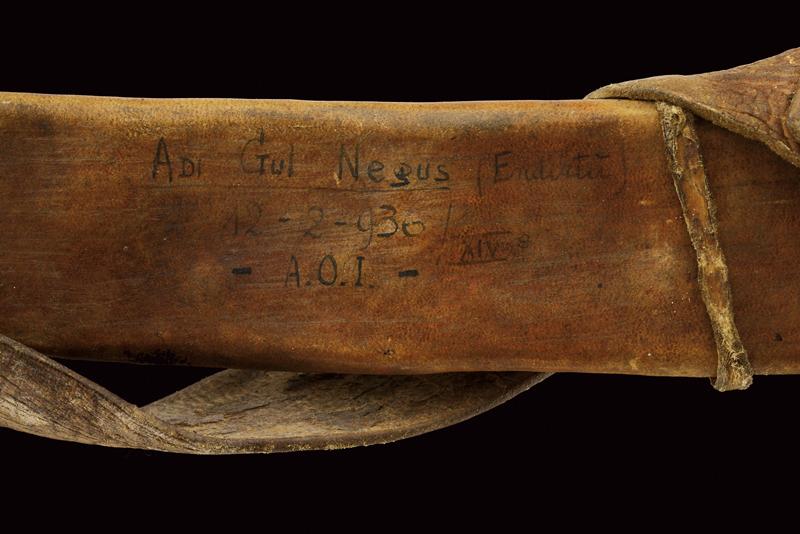 Adi Gul Negus (Endertà)
12-2-936/
XIV
- A.O.I. -